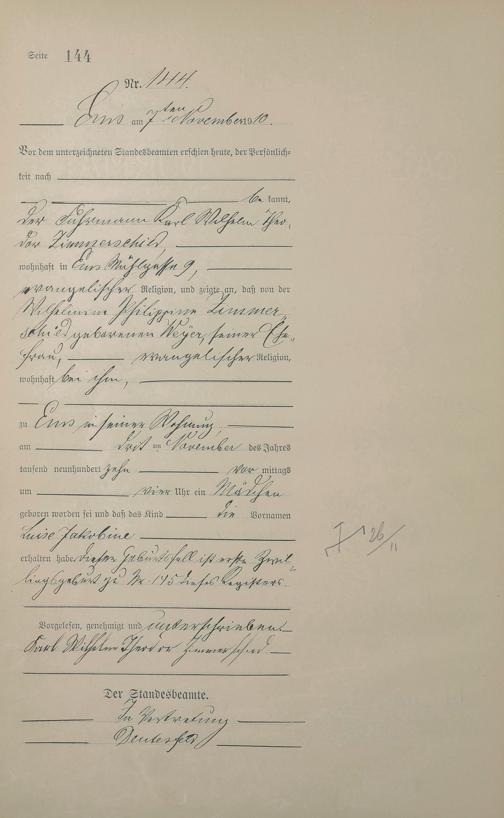 Seite 144
Nr. 144.
Ems am 7ten November 1910.
Vor dem unterzeichneten Standesbeamten erschien heute, der Persönlich-
keit nach
be kannt,
der Fuhrmann Karl Wilhelm Theo-
dor Zimmerschied,
wohnhaft in Ems Mühlgasse 9,
evangelischer Religion, und zeigte an, daß von der
Wilhelmine Philippine Zimmer-
schied geborenen Meyer, seiner Ehe-
frau, evangelischer Religion,
wohnhaft bei ihm,
zu Ems in seiner Wohnung,
am drit en November des Jahres
tausend neunhundert zehn vor mittags
um vier Uhr ein Mädchen
geboren worden sei und daß das Kind die Vornamen
Luise Jakobine
erhalten habe. Dieser Geburtsfall ist erste Zwil-
lingsgeburt zu Nr. 145 dieses Registers.
Vorgelesen, genehmigt und unterschrieben
Karl Wilhelm Theodor Zimmerschied
Der Standesbeamte.
In Vertretung
26/11